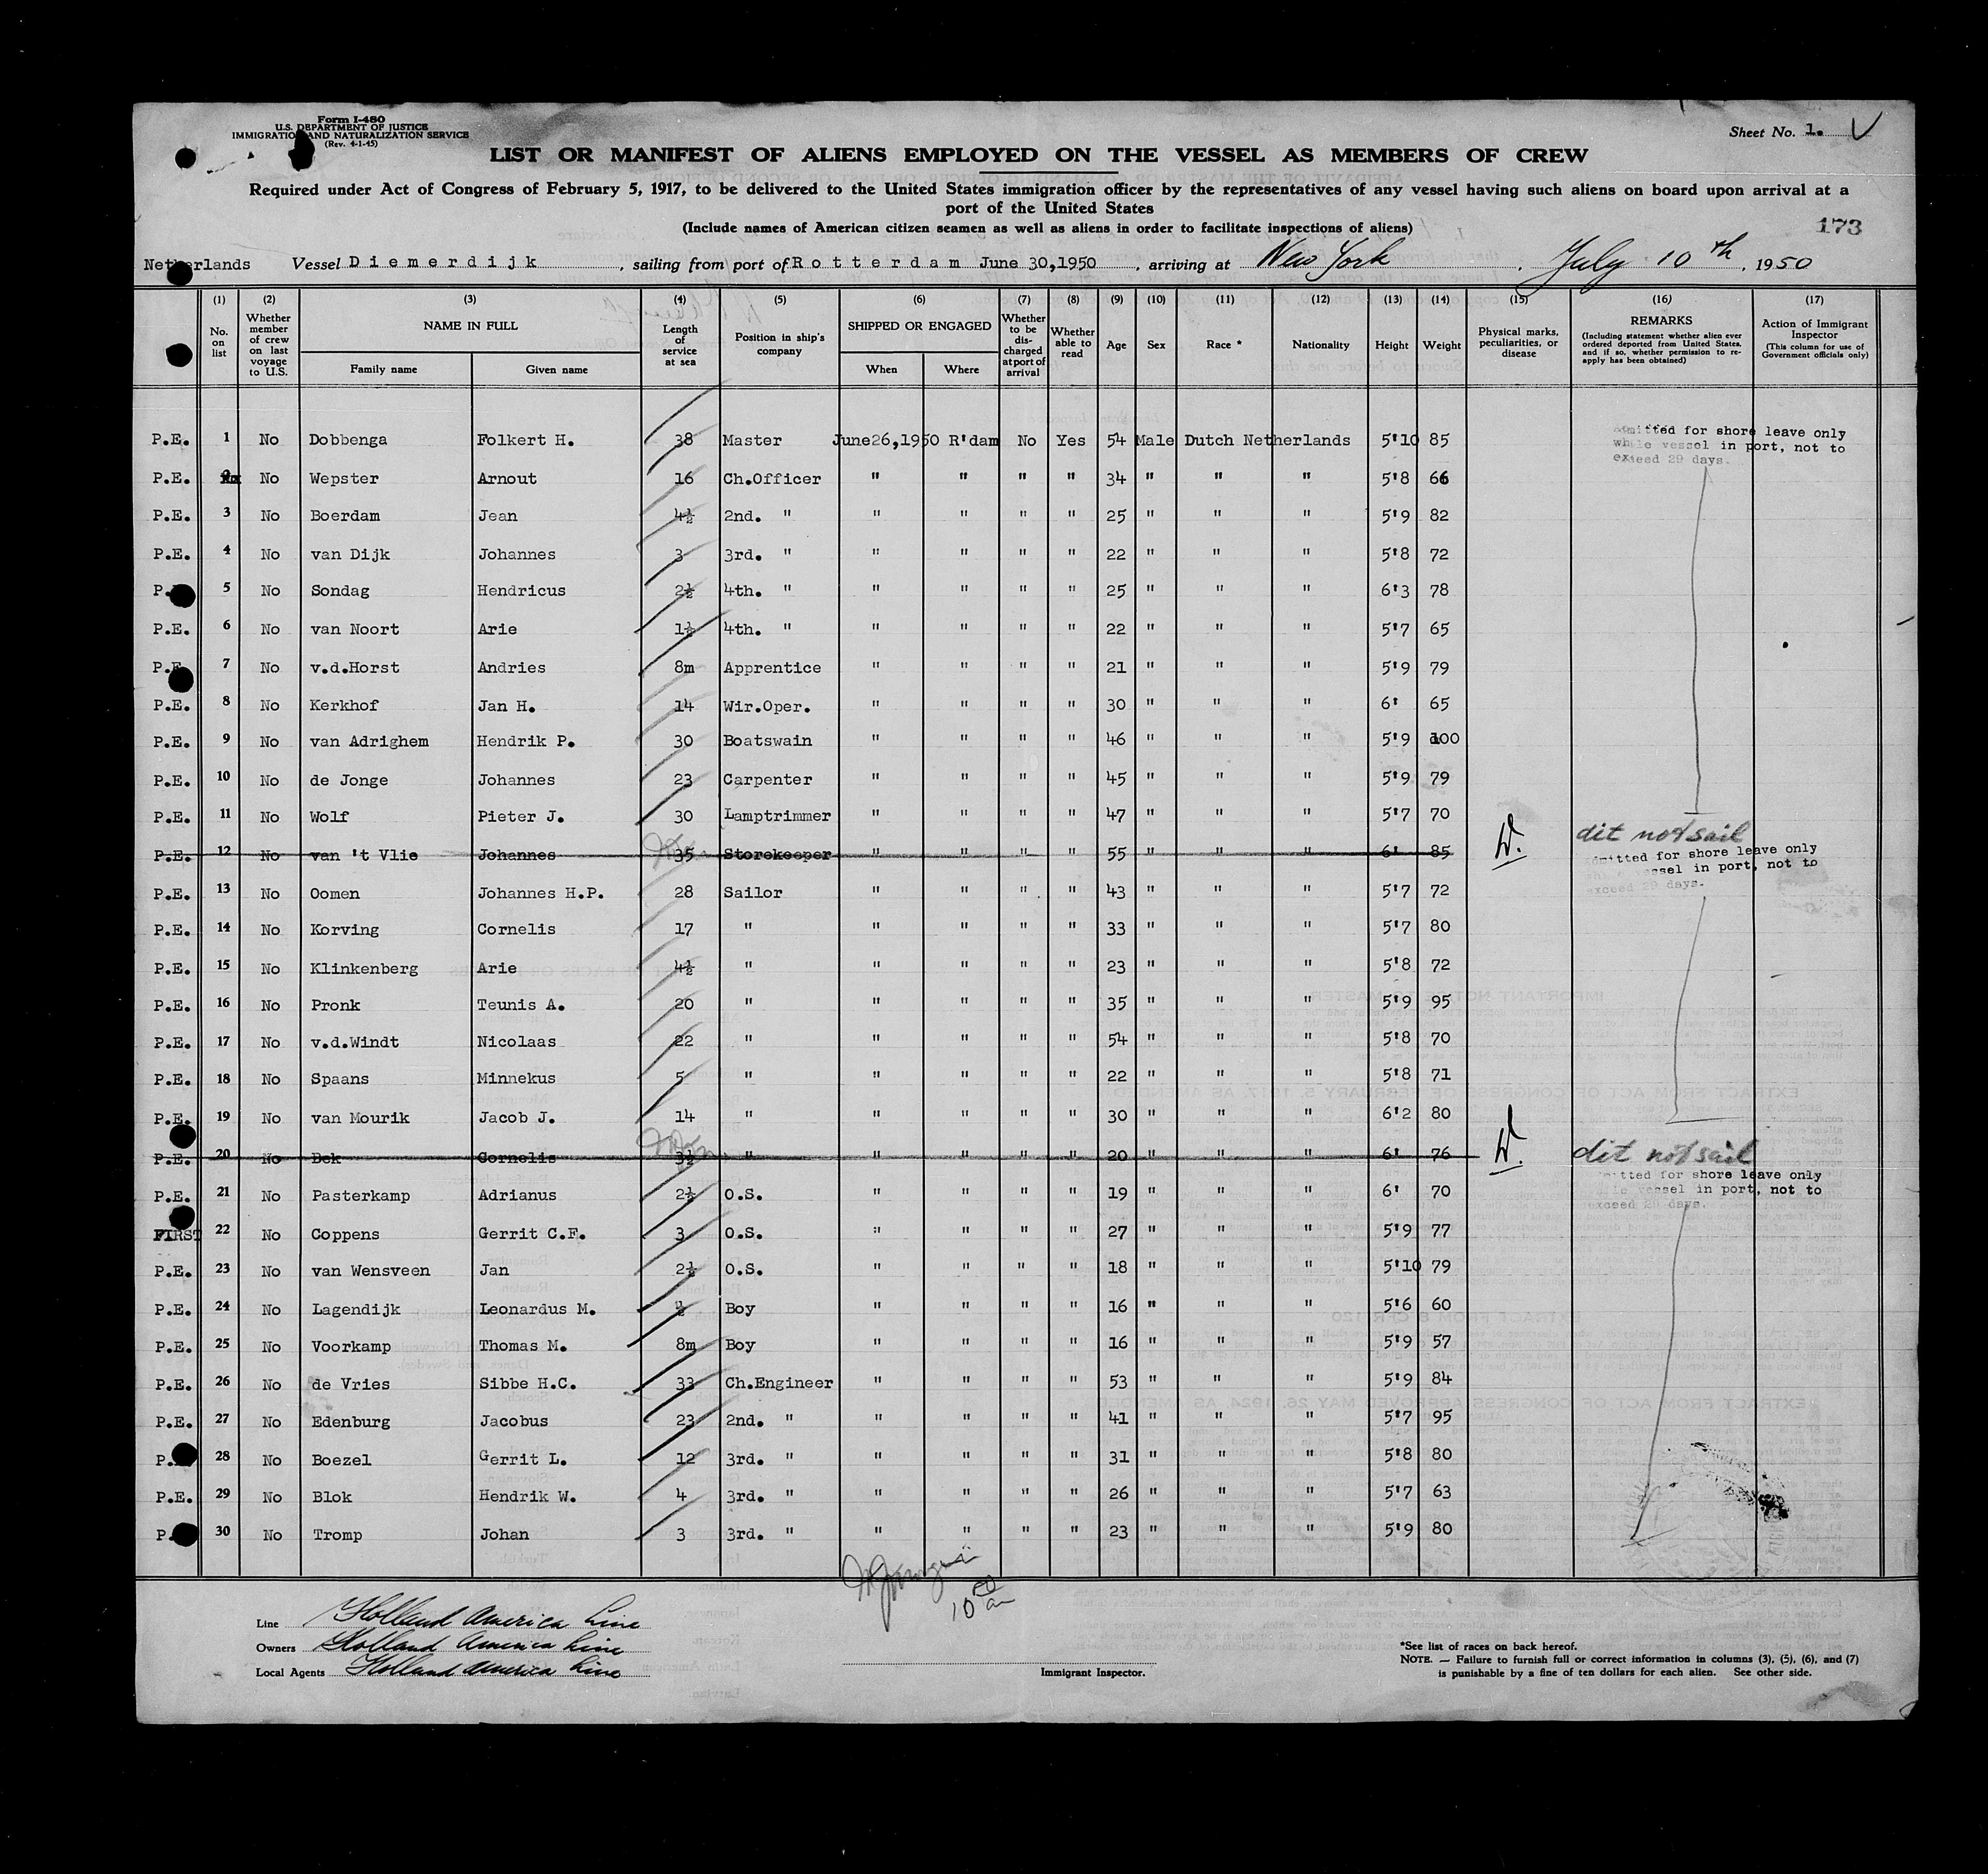 Form I-480
U.S. DEPARTMENT OF JUSTICE
IMMIGRATION AND NATURALIZATION SERVICE
(Rev. 4-1-45)
Sheet No. 1.
LIST OR MANIFEST OF ALIENS EMPLOYED ON THE VESSEL AS MEMBERS OF CREW
Required under Act of Congress of February 5, 1917, to be delivered to the United States immigration officer by the representatives of any vessel having such aliens on board upon arrival at a
port of the United States
(Include names of American citizen seamen as well as aliens in order to facilitate inspections of aliens)
173
Netherlands Vessel Diemerdijk, sailing from port of Rotterdam June 30,1950, arriving at New York, July 10th, 1950
(1) (2) (3) (4) (5) (6) (7) (8) (9) (10) (11) (12) (13) (14) (15) (16) (17)
No. on list
Whether member of crew on last voyage to U.S.
NAME IN FULL
Family name
Given name
Length of service at sea
Position in ship's company
SHIPPED OR ENGAGED
When
Where
Whether to be discharged at port of arrival
Whether able to read
Age
Sex
Race *
Nationality
Height
Weight
Physical marks, peculiarities, or disease
REMARKS
(Including statement whether alien ever ordered deported from United States, and if so, whether permission to re-apply has been obtained)
Action of Immigrant Inspector
(This column for use of Government officials only)
P.E. 1 No Dobbenga Folkert H. 38 Master June26,1950 R'dam No Yes 54 Male Dutch Netherlands 5'10 85 admitted for shore leave only
while vessel in port, not to
exceed 29 days.
P.E. No Wepster Arnout 16 Ch.Officer " " " " 34 " " " 5'8 66
P.E. 3 No Boerdam Jean 4½ 2nd. " " " " " 25 " " " 5'9 82
P.E. 4 No van Dijk Johannes 3 3rd. " " " " " 22 " " " 5'8 72
P. 5 No Sondag Hendricus 2½ 4th. " " " " " 25 " " " 6'3 78
P.E. 6 No van Noort Arie 1½ 4th. " " " " " 22 " " " 5'7 65
P.E. 7 No v.d.Horst Andries 8m Apprentice " " " " 21 " " " 5'9 79
P.E. 8 No Kerkhof Jan H. 14 Wir.Oper. " " " " 30 " " " 6' 65
P.E. 9 No van Adrighem Hendrik P. 30 Boatswain " " " " 46 " " " 5'9 100
P.E. 10 No de Jonge Johannes 23 Carpenter " " " " 45 " " " 5'9 79
P.E. 11 No Wolf Pieter J. 30 Lamptrimmer " " " " 47 " " " 5'7 70
dit not sail
P.E. 12 No van 't Vlie Johannes 35 Storekeeper " " " " 55 " " " 6' 85 admitted for shore leave only
vessel in port, not to
exceed 29 days.
P.E. 13 No Oomen Johannes H.P. 28 Sailor " " " " 43 " " " 5'7 72
P.E. 14 No Korving Cornelis 17 " " " " " 33 " " " 5'7 80
P.E. 15 No Klinkenberg Arie 4½ " " " " " 23 " " " 5'8 72
P.E. 16 No Pronk Teunis A. 20 " " " " " 35 " " " 5'9 95
P.E. 17 No v.d.Windt Nicolaas 22 " " " " " 54 " " " 5'8 70
P.E. 18 No Spaans Minnekus 5 " " " " " 22 " " " 5'8 71
P.E. 19 No van Mourik Jacob J. 14 " " " " " 30 " " " 6'2 80
P.E. 20 No Bek Cornelis 3½ " " " " " 20 " " " 6' 76 dit not sail
admitted for shore leave only
vessel in port, not to
exceed 29 days.
P.E. 21 No Pasterkamp Adrianus 2½ O.S. " " " " 19 " " " 6' 70
FIRST 22 No Coppens Gerrit C.F. 3 O.S. " " " " 27 " " " 5'9 77
P.E. 23 No van Wensveen Jan 2½ O.S. " " " " 18 " " " 5'10 79
P.E. 24 No Lagendijk Leonardus M. ½ Boy " " " " 16 " " " 5'6 60
P.E. 25 No Voorkamp Thomas M. 8m Boy " " " " 16 " " " 5'9 57
P.E. 26 No de Vries Sibbe H.C. 33 Ch.Engineer " " " " 53 " " " 5'9 84
P.E. 27 No Edenburg Jacobus 23 2nd. " " " " " 41 " " " 5'7 95
P. 28 No Boezel Gerrit L. 12 3rd. " " " " " 31 " " " 5'8 80
P.E. 29 No Blok Hendrik W. 4 3rd. " " " " " 26 " " " 5'7 63
P. 30 No Tromp Johan 3 3rd. " " " " " 23 " " " 5'9 80
Line Holland America Line
Owners Holland America Line
Local Agents Holland America Line
Immigrant Inspector.
*See list of races on back hereof.
NOTE. — Failure to furnish full or correct information in columns (3), (5), (6), and (7)
is punishable by a fine of ten dollars for each alien. See other side.